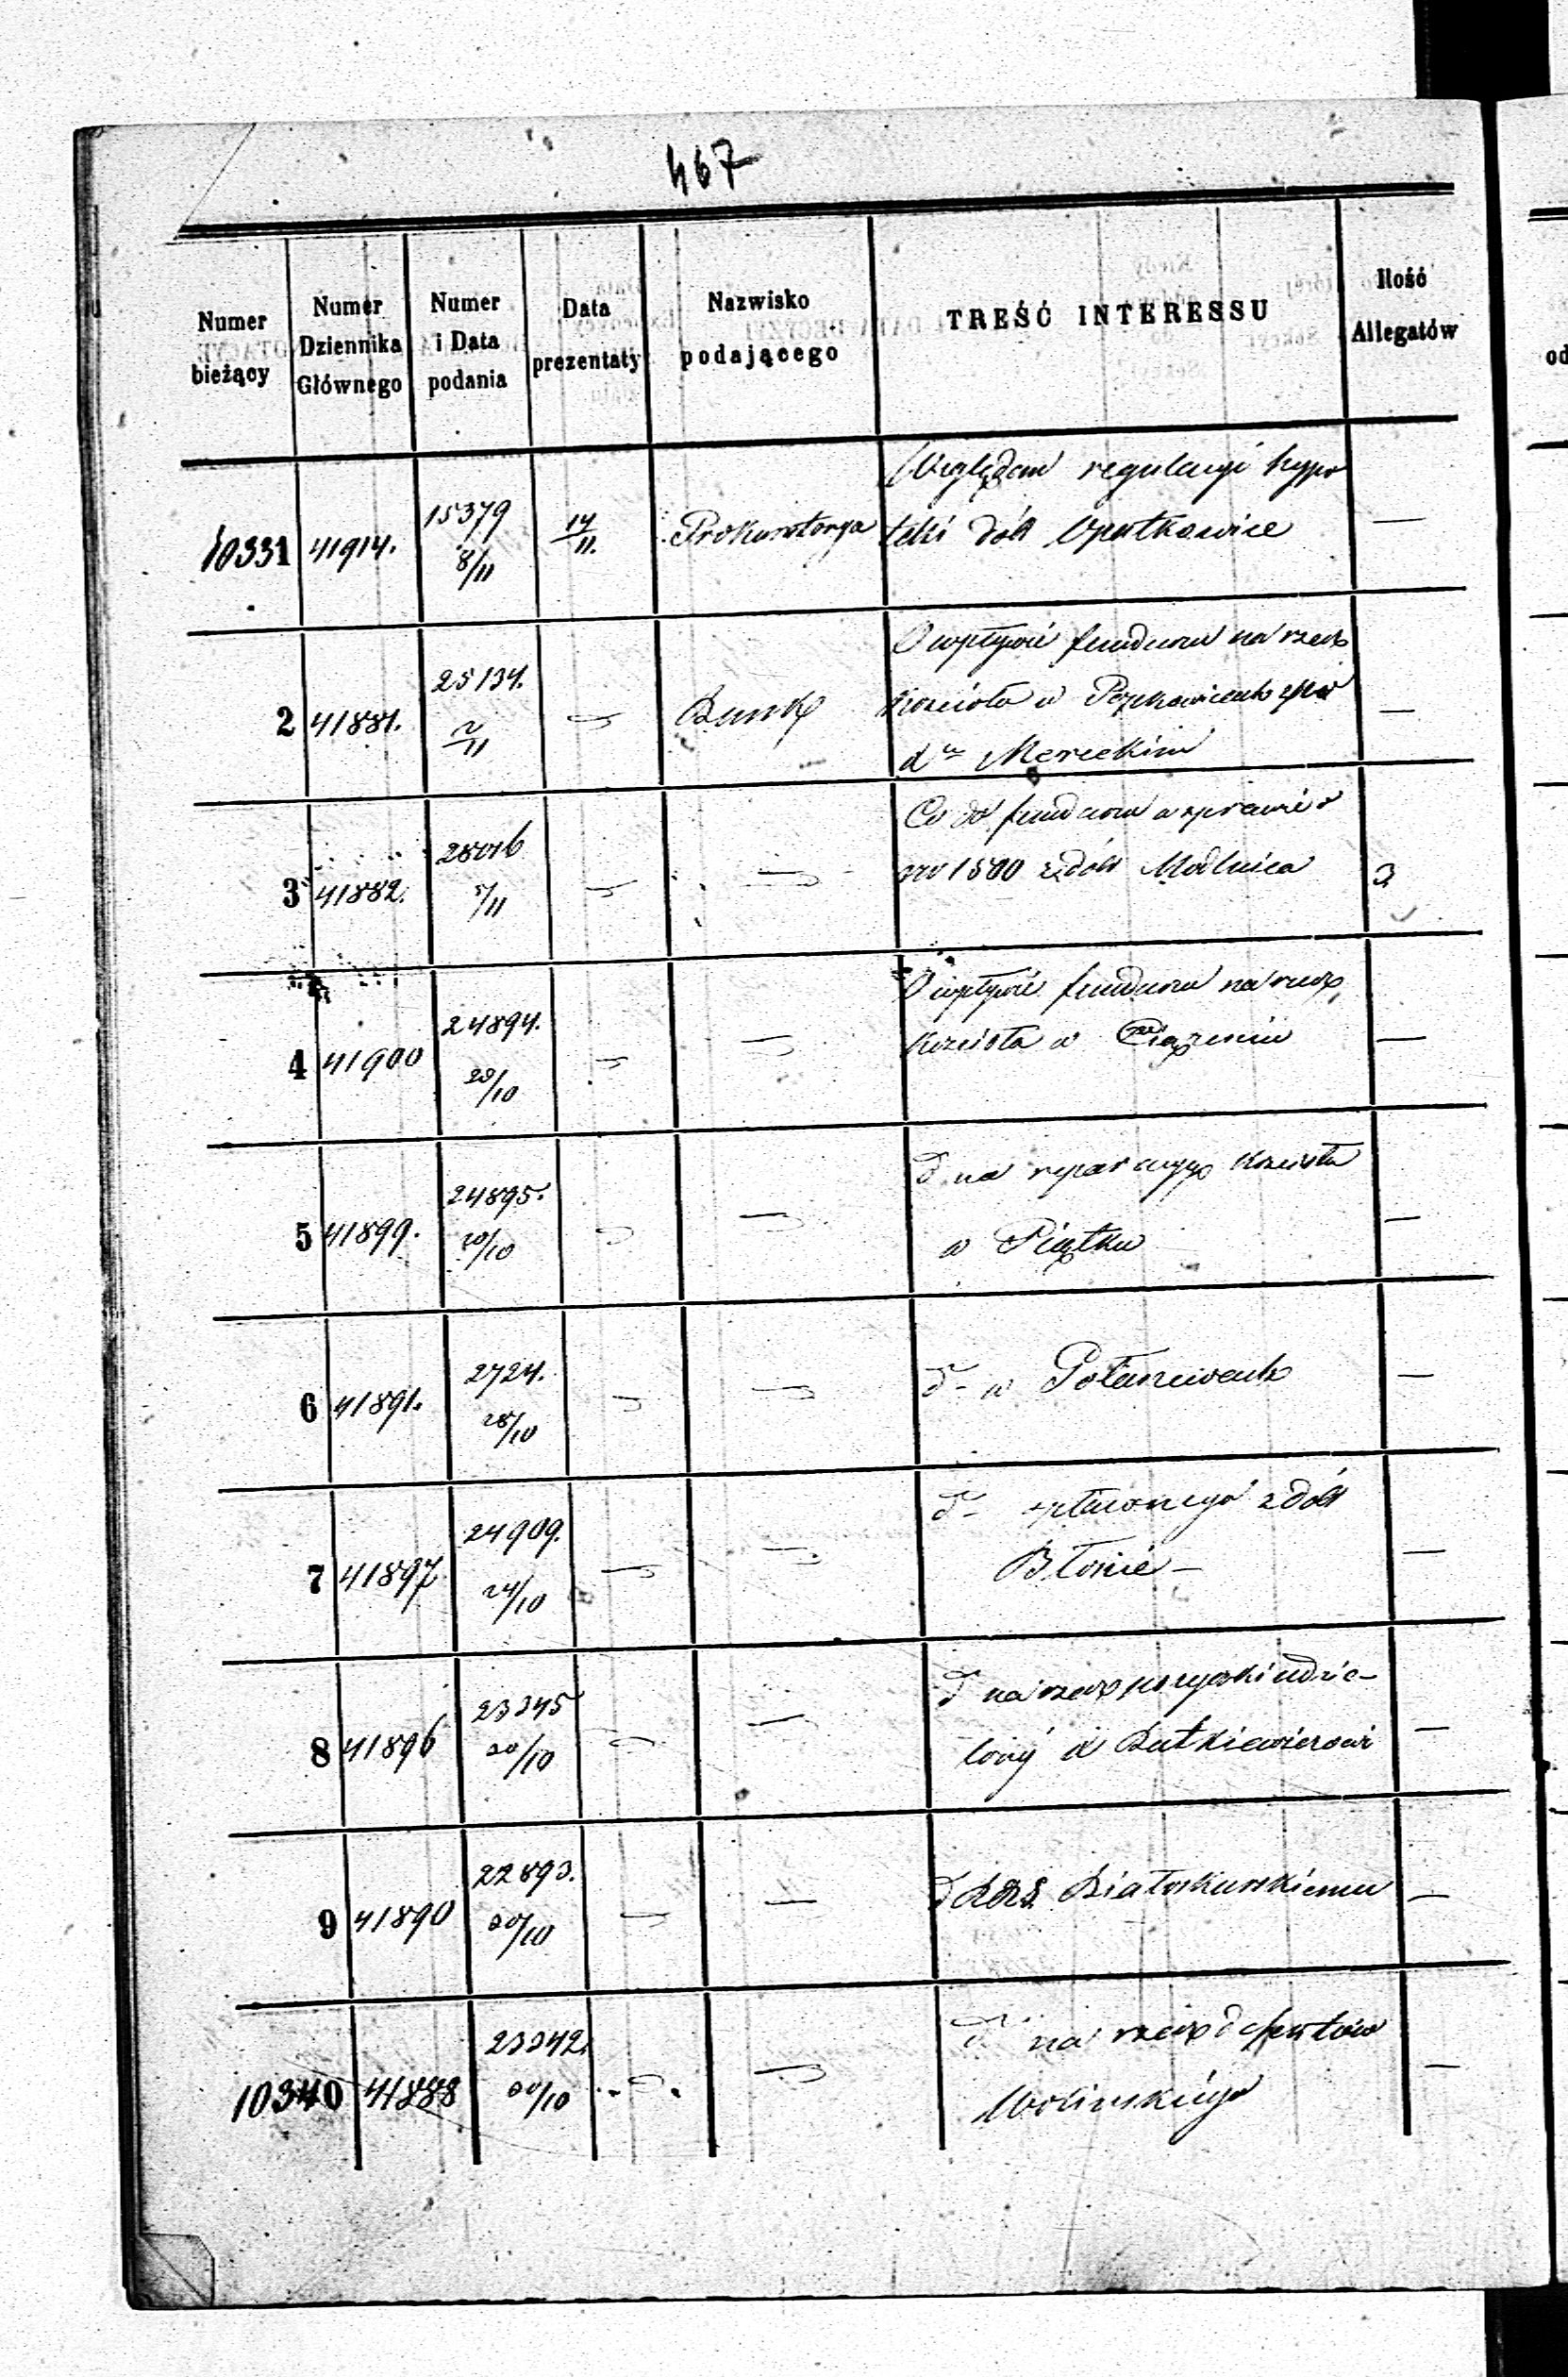 467
Numer bieżący
Numer Dziennika Głównego
Numer i Data podania
Data prezentaty
Nazwisko podającego
TREŚĆ INTERESSU
Ilość Allegatów
10331 41914. 15379 8/11 14/11. Prokuratorya Względem regulacyi hypo
teki dóbr Opatkowice —
2 41881. 25134. 2/11 Bank O wpływie funduszu na rzecz
Kościoła w
d° Mereckim —
3 41882. 5/11 Co do funduszu w sprawie o
1500 z dób Modlnica 3
4 41900 24894. 29/10 O wpływie funduszu na rzecz
Kościoła w Ciążeniu —
5 41899. 24895. 20/10 d° na reparacyę Kościoła
w Piątku —
6 41891. 2724. 28/10 d° w —
7 41897 24909. 24/10 d° z dób
Błonie — —
8 41896 23345 30/10 d° na rzecz
w Butkiewiczowi —
9 41890 22893. 30/10 d° Białoskurskiemu —
10340 41888 23342. 30/10 d° na rzecz
Wolinskiego —